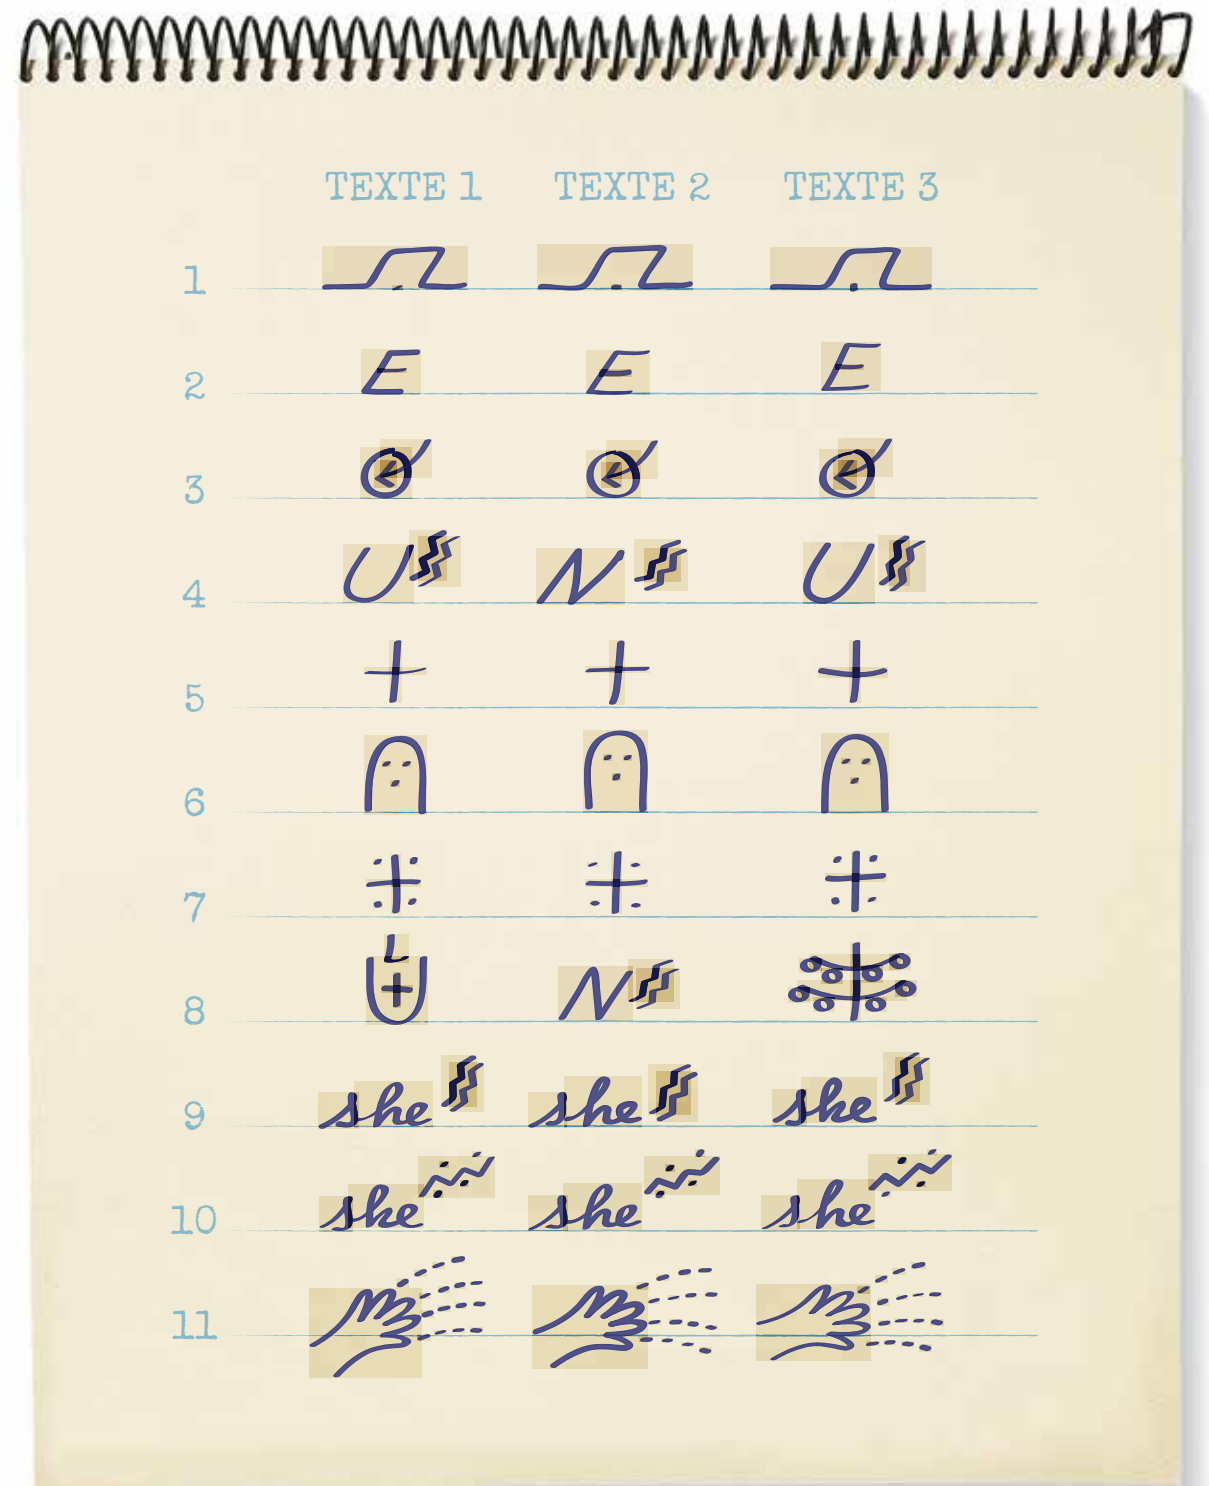 TEXTE 1 TEXTE 2 TEXTE 3
1
2 E E E
3
4 U N U
5
6
7
8 N
9 she she ske
10 ske she she
11